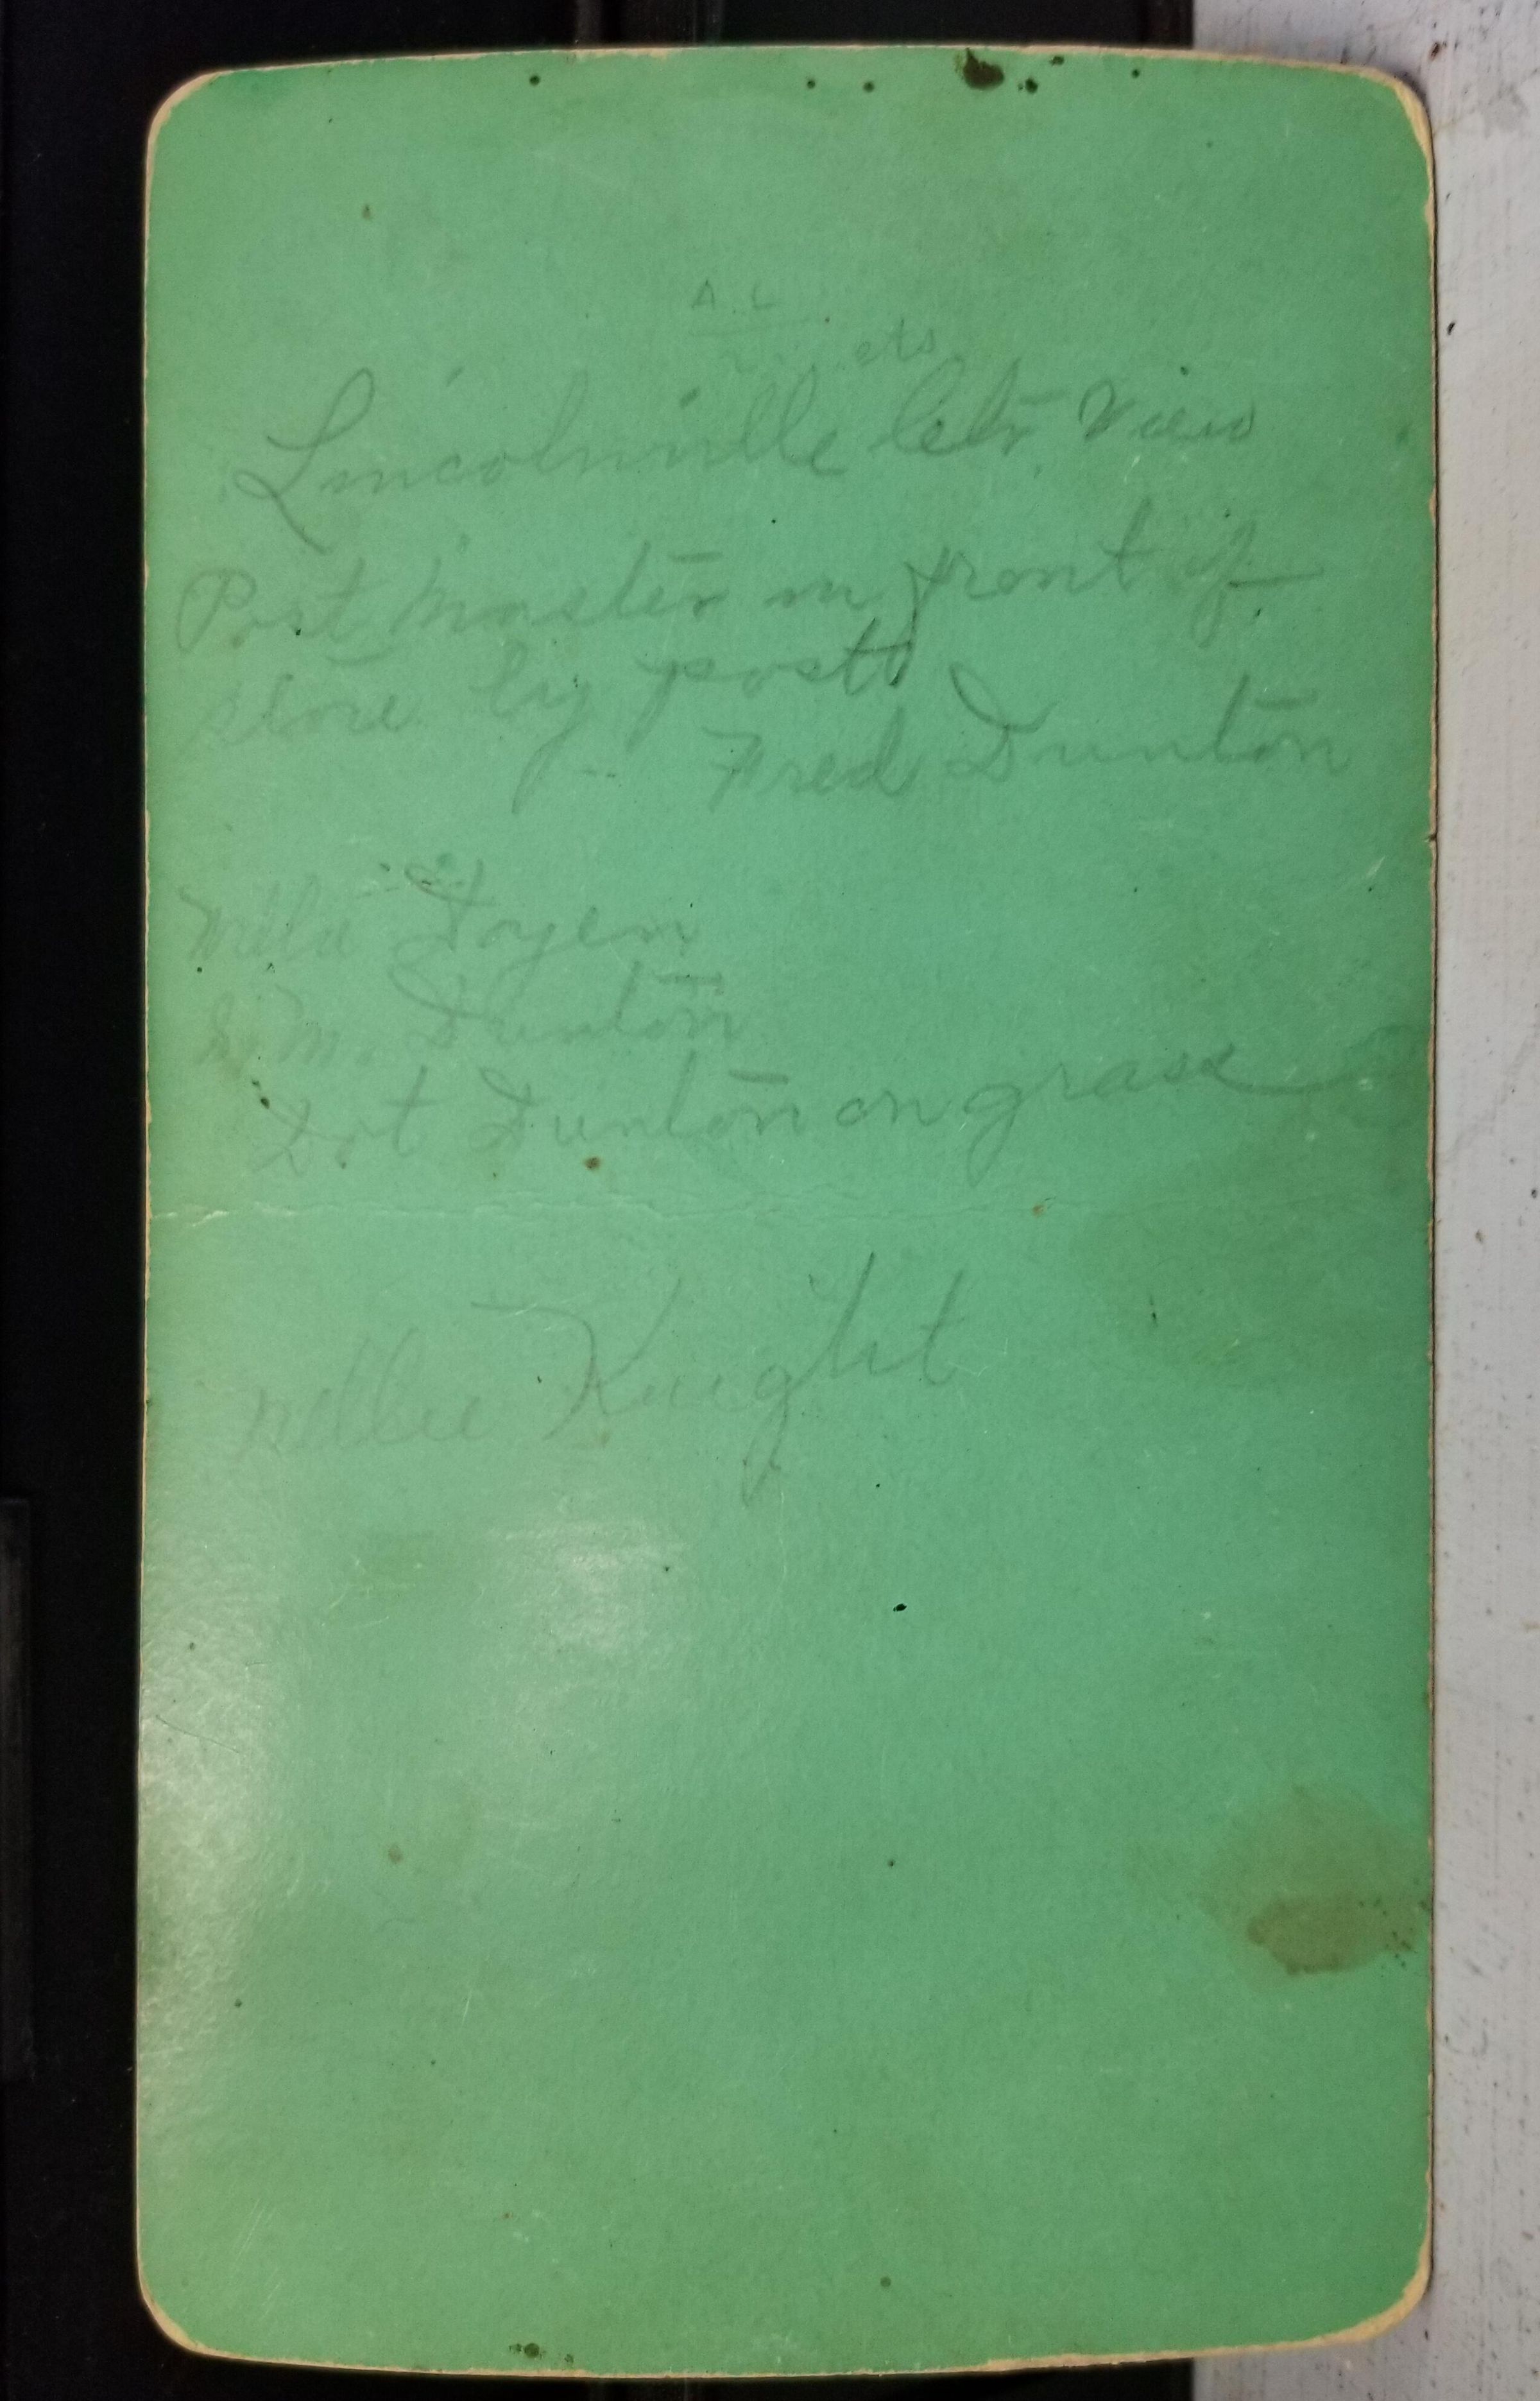 A. L
cts
Lincolnville Cetr View
Post Master in front of
store by post
Fred Dunton
Doyen
S. M. Dunton
Dot Dunton on grass
Nellie Knight